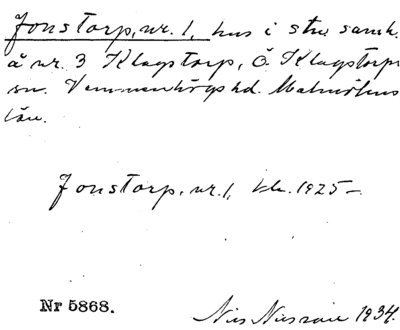 Jonstorp, nr. 1, hus i stg samh.
å nr. 3 Klagstorp, Ö. Klagstorps
sn. Vemmenhögs hd. Malmöhus
län.
Jonstorp, nr. 1, bl. 1925 –.
Nr 5868.
Nils Nilsson 1934.